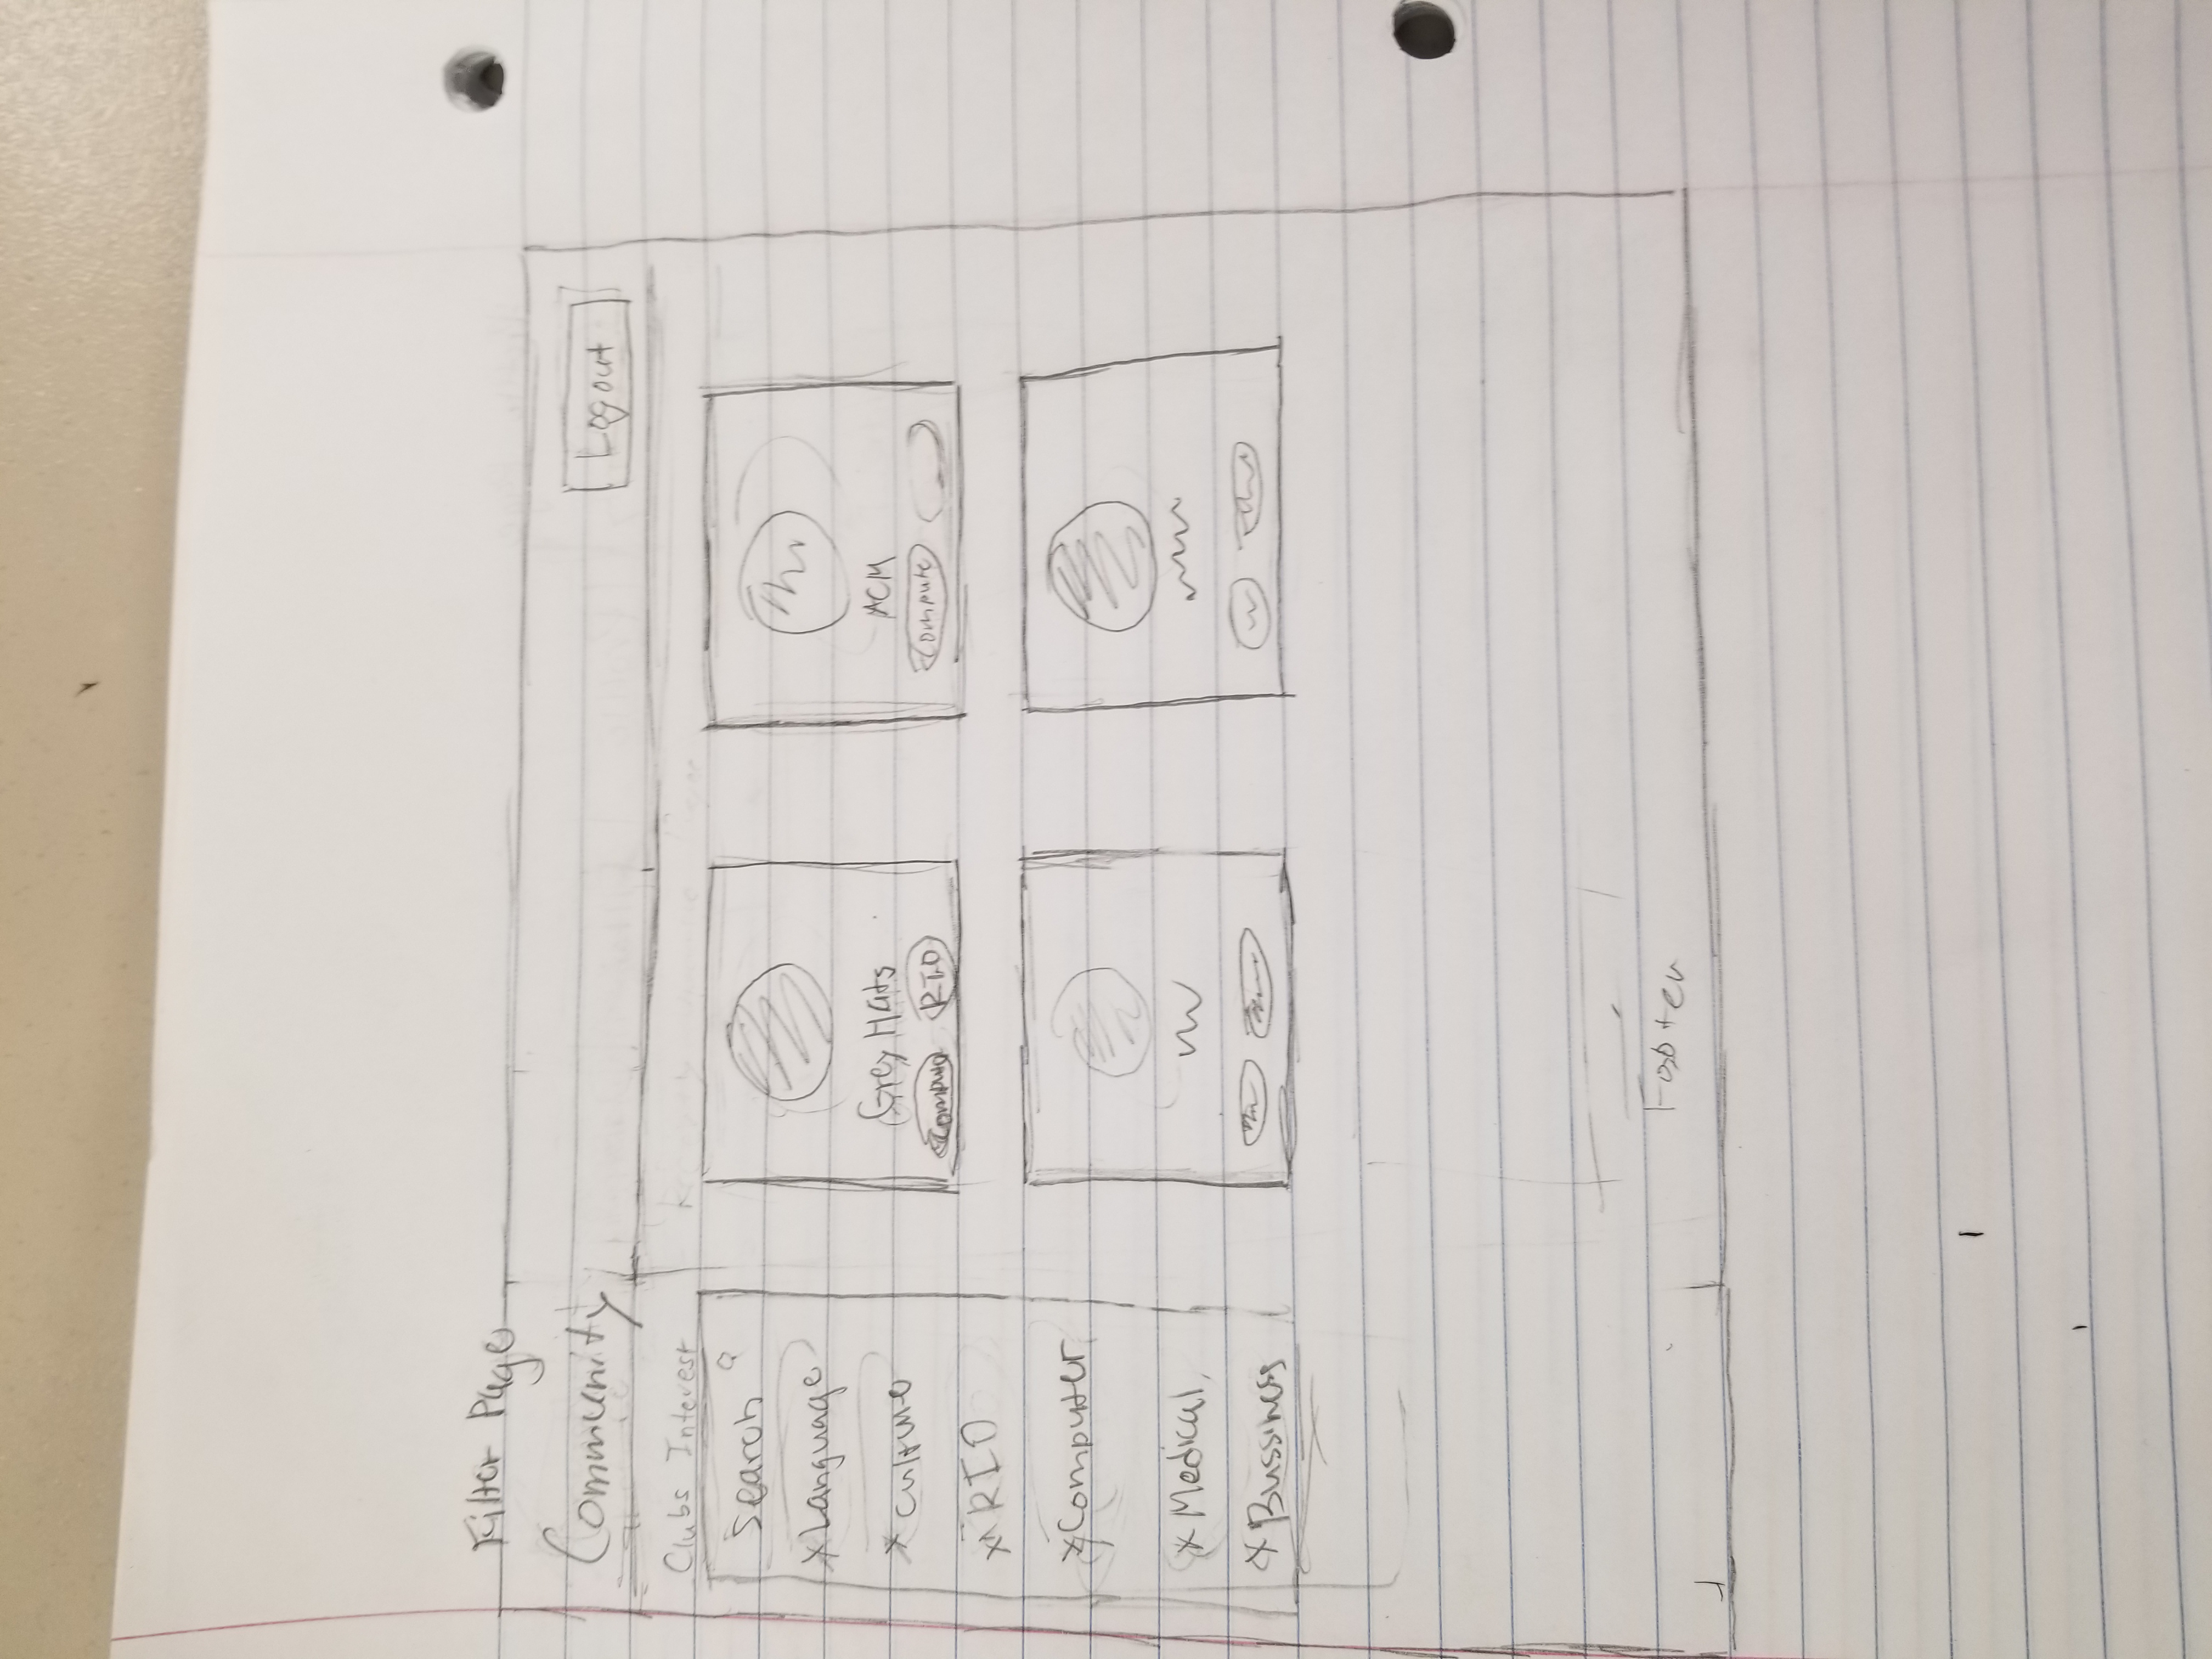 Filter Page
Community
Logout
Clubs Interest
Search
* Language
* Culture
* RIO
* Computer
* Medical
* Bussiness
Grey Hats
Compute
RIO
ACM
Compute
Footer